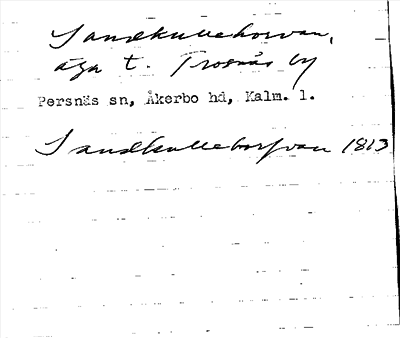 Sandkullehorvan,
äga t. Trosnäs by
Persnäs sn, Åkerbo hd, Kalm. l.
Sandkullehorfvan 1813